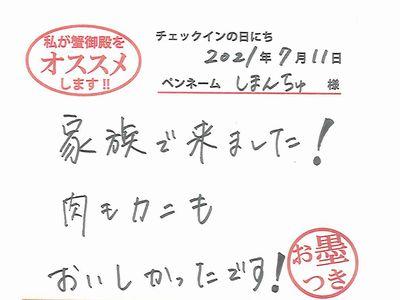 私が蟹御殿を
オススメ
します!!
チェックインの日にち
2021年7月11日
ペンネーム しまんちゅ 様
家族で来ました!
肉もカニも
おいしかったです!
お墨
つき